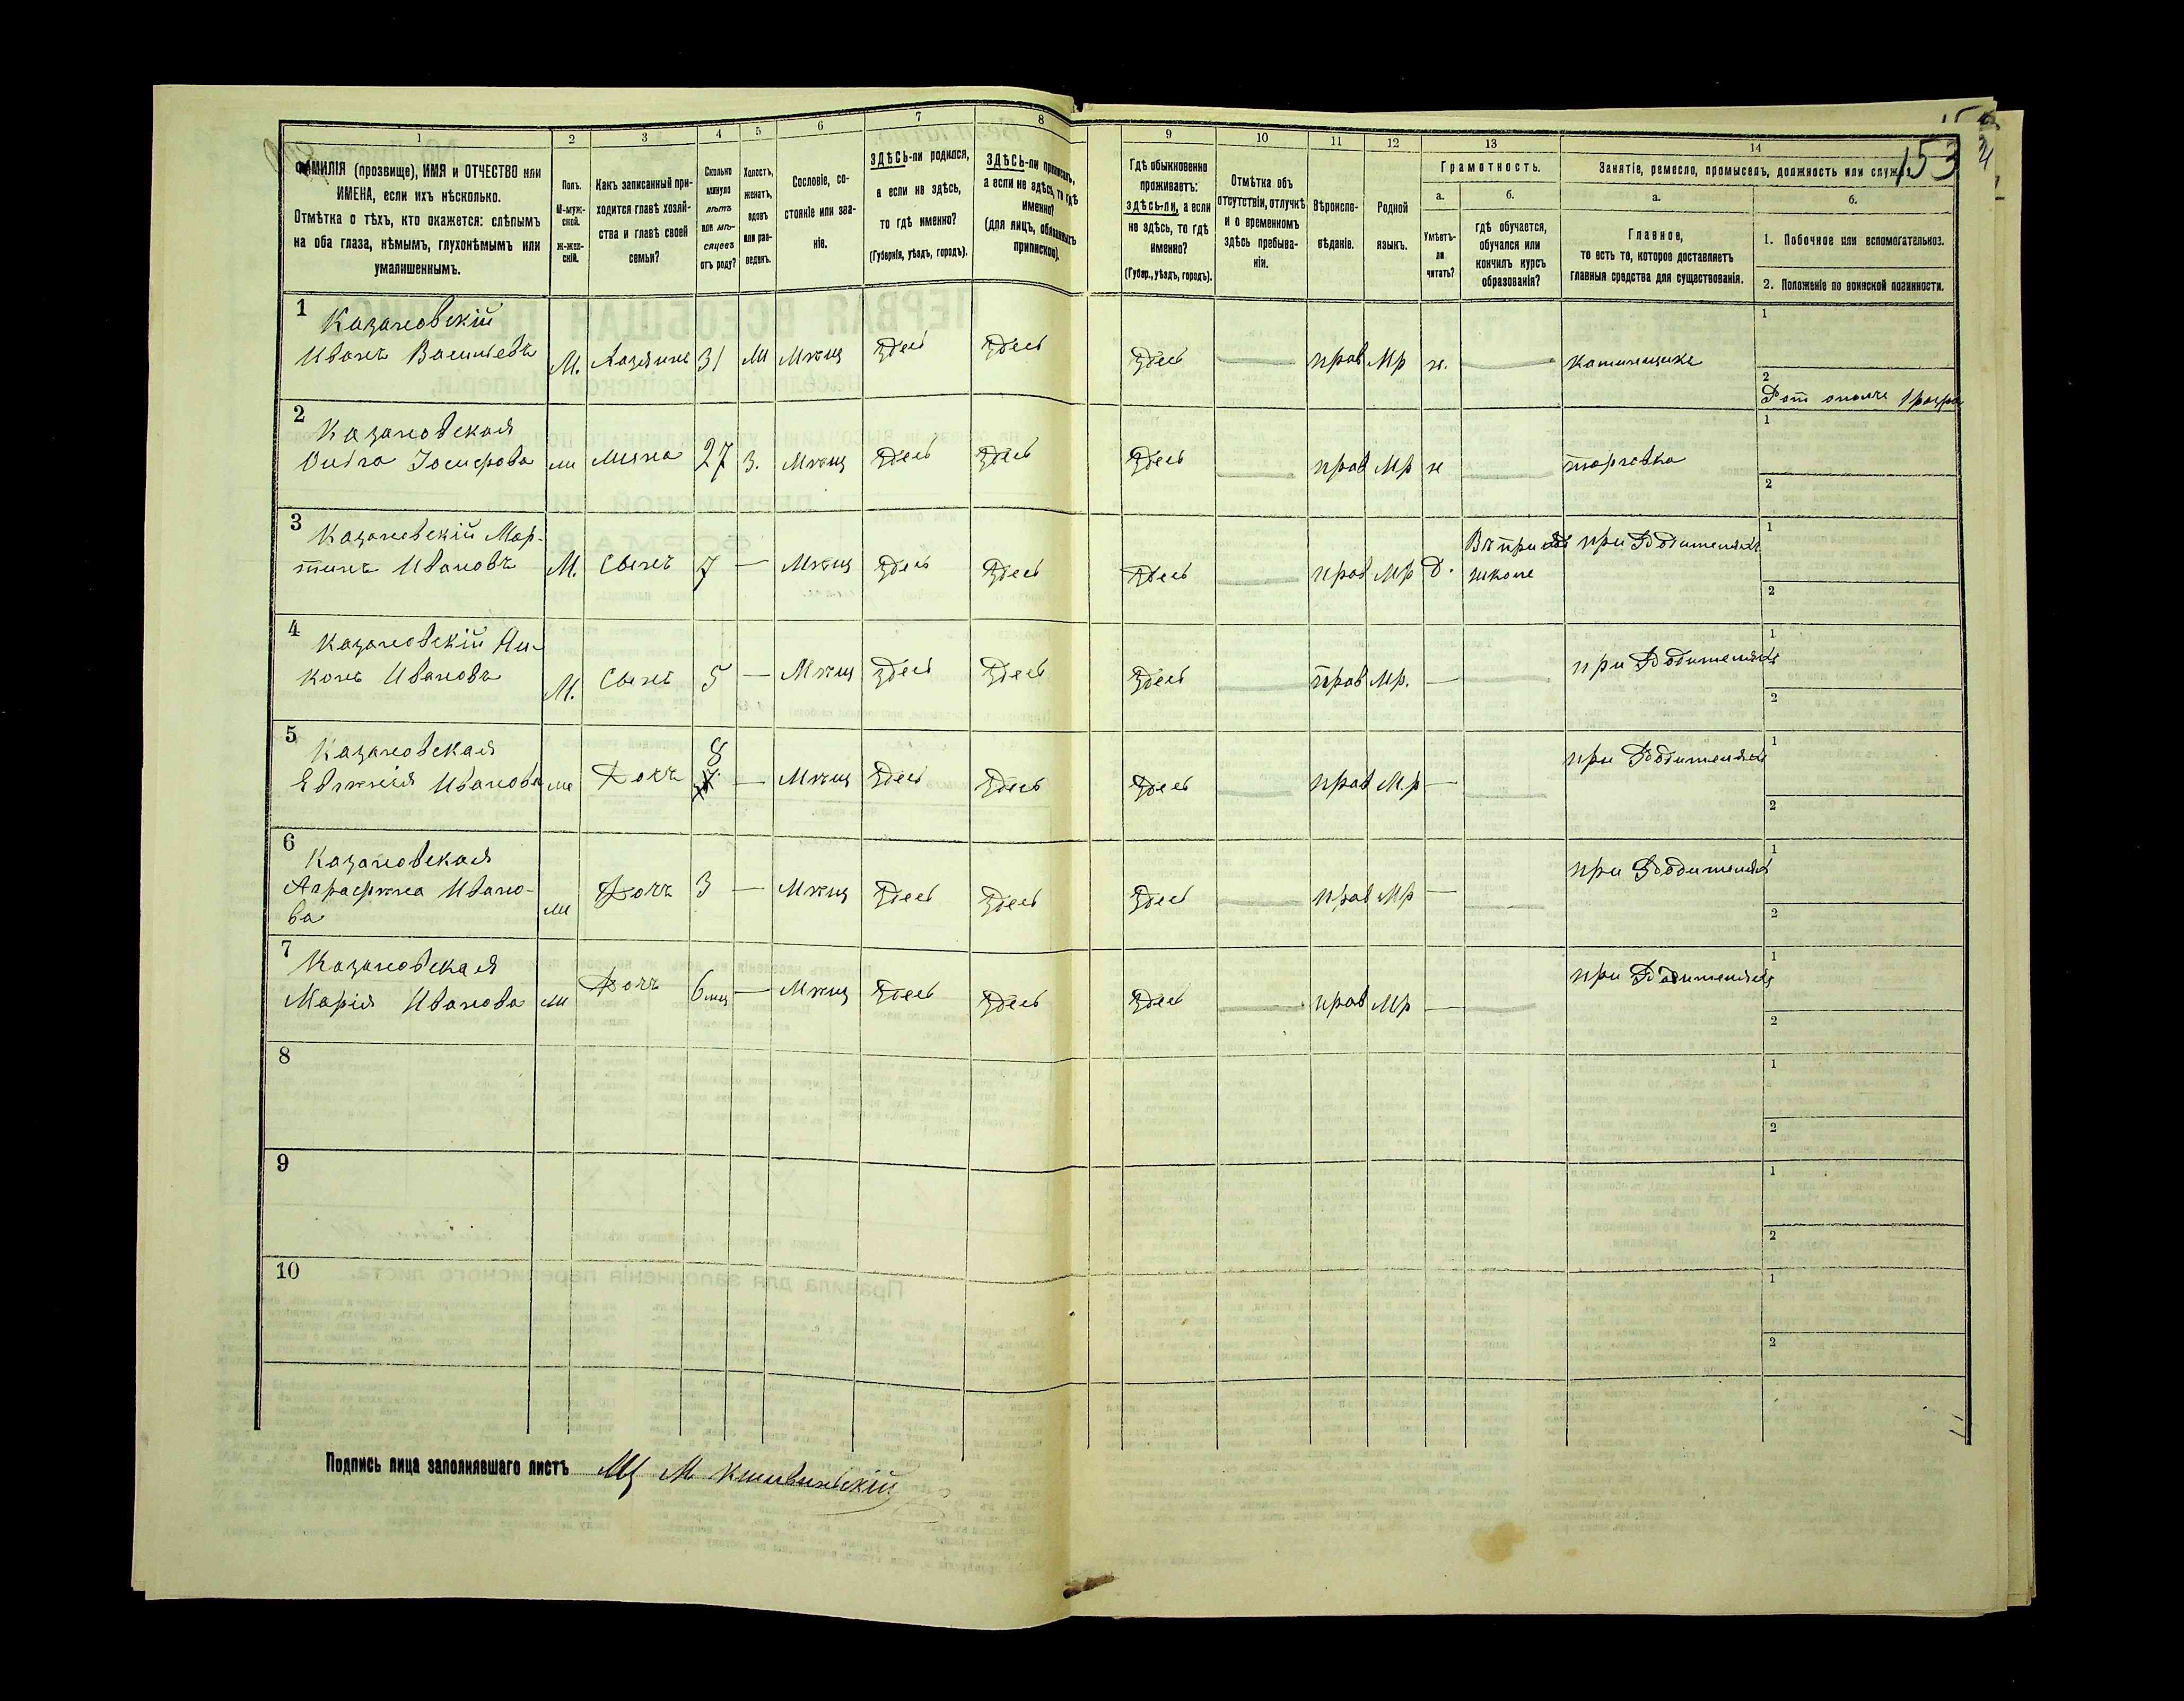 153
1 2 3 4 5 6 7 8 9 10 11 12 13 14
ФАМИЛІЯ (прозвище), ИМЯ и ОТЧЕСТВО или
ИМЕНА, если ихъ нѣсколько.
Отмѣтка о тѣхъ, кто окажется: слѣпымъ
на оба глаза, нѣмымъ, глухонѣмымъ или
умалишеннымъ.
Полъ.
М-муж-
ской.
ж-жен-
скій.
Какъ записанный при-
ходится главѣ хозяй-
ства и главѣ своей
семьи?
Сколько
минуло
лѣтъ
или мѣ-
сяцевъ
отъ роду?
Холостъ,
женатъ,
вдовъ
или раз-
веденъ.
Сословіе, со-
стояніе или зва-
ніе.
ЗДѢСЬ-ли родился,
а если не здѣсь,
то гдѣ именно?
(Губернія, уѣздъ, городъ).
ЗДѢСЬ-ли приписанъ,
а если не здѣсь, то гдѣ
именно?
(для лицъ, обязанныхъ
припискою).
Гдѣ обыкновенно
проживаетъ:
ЗДѢСЬ-ли, а если
не здѣсь, то гдѣ
именно?
(Губер., уѣздъ, городъ).
Отмѣтка объ
отсутствіи, отлучкѣ
и о временномъ
здѣсь пребыва-
ніи.
Вѣроиспо-
вѣданіе.
Родной
языкъ.
Грамотность.
а.
Умѣетъ-
ли
читать?
б.
гдѣ обучается,
обучался или
кончилъ курсъ
образованія?
Занятіе, ремесло, промыселъ, должность или служба.
а.
Главное,
то есть то, которое доставляетъ
главныя средства для существованія.
б.
1. Побочное или вспомогательное.
2. Положеніе по воинской повинности.
1 Казановскій
Иванъ Васильевъ М. Хозяинъ 31 Мѣщ Здесь Здесь Здесь прав Мр н. каменщикъ
1
2
2 Казановская
Іосифова жена 27 З. Мѣщ Здесь Здесь Здесь прав Мр н торговка
1
2
3 Казановскій Мар-
тинъ Ивановъ М. Сынъ 7 — Мѣщ Здесь Здесь Здесь прав Мр д. школе при Родителяхъ
1
2
4 Казановскій
Ивановъ М. Сынъ 5 — Мѣщ Здесь Здесь Здесь прав Мр. — при Родителяхъ
1
2
5 Казановская
Евгенія Иванова Дочь 8 — Мѣщ Здесь Здесь Здесь прав М.р — при Родителяхъ
1
2
6 Казановская
Аграфена Ивано-
ва Дочь 3 — Мѣщ Здесь Здесь Здесь прав Мр — при Родителяхъ
1
2
7 Казановская
Марія Иванова Дочь 6 мец — Мѣщ Здесь Здесь Здесь прав Мр — при Родителяхъ
1
2
8
1
2
9
1
2
10
1
2
Подпись лица заполнявшаго листъ